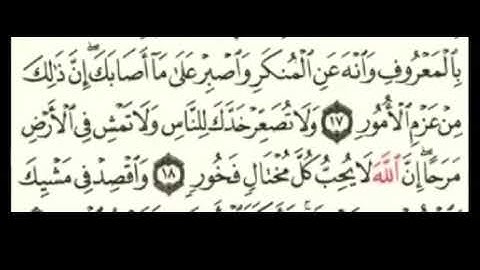 بِٱلْمَعْرُوفِ وَٱنْهَ عَنِ ٱلْمُنكَرِ وَٱصْبِرْ عَلَىٰ مَآ أَصَابَكَ ۖ إِنَّ ذَٰلِكَ
مِنْ عَزْمِ ٱلْأُمُورِ ١٧ وَلَا تُصَعِّرْ خَدَّكَ لِلنَّاسِ وَلَا تَمْشِ فِي ٱلْأَرْضِ
مَرَحًا ۖ إِنَّ ٱللَّهَ لَا يُحِبُّ كُلَّ مُخْتَالٍ فَخُورٍ ١٨ وَٱقْصِدْ فِي مَشْيِكَ